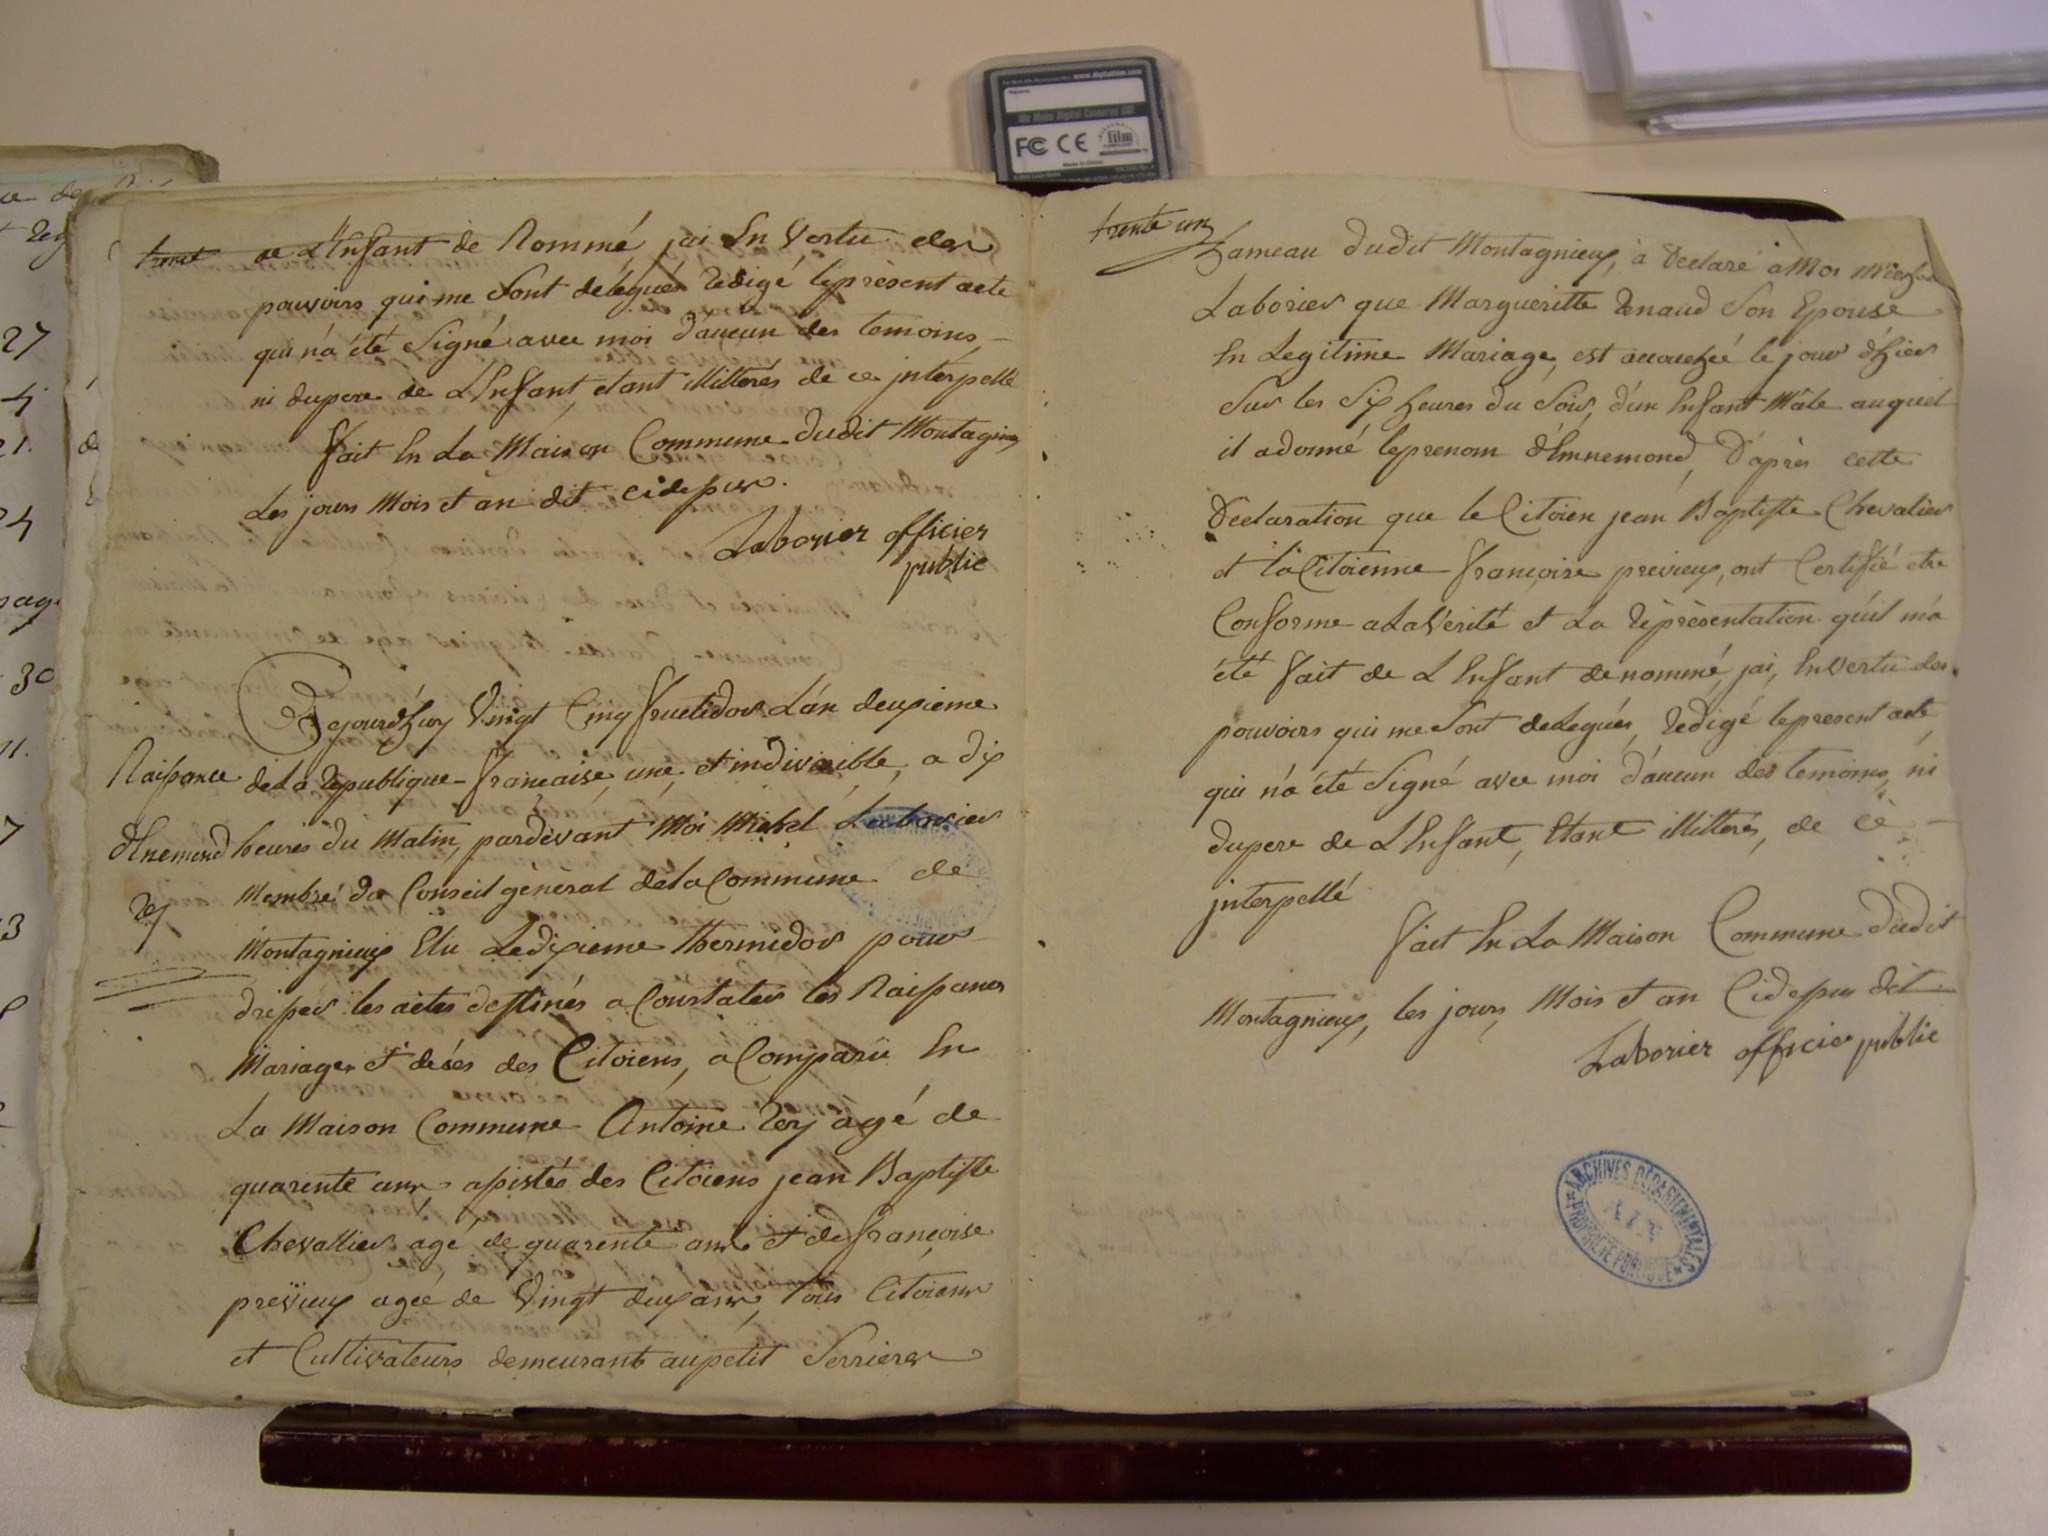 trente
de L'Enfant de Nommé, jai En Vertu des
pouvoirs qui me Sont délégués Redigé leprésent acte
qui n'a été Signé avec moi d'aucun des temoins
ni dupere de L'Enfant, etant illiterés de ce jnterpellé
fait En La Maison Commune dudit Montagnieux
Les jours Mois et an dit cidessus.
Laborier officier
public
Cejourd'huy Vingt Cinq fructidor L'an deuxieme
Naissance
de La Republique francaise, une, et indivisible, a dix
d'Ennemond
heures du Matin, pardevant Moi Michel Laborier
Rey
Membre du Conseil général de la Commune de
Montagnieux Elu Ledixieme thermidor pour
dresser les actes destinés a Constater les Naissances
Mariages et décés des Citoiens, a Comparu En
La Maison Commune Antoine Rey agé de
quarente ans, assistée des Citoiens jean Baptiste
Chevallier age de quarente ans et de françoise
previeux agée de Vingt deux ans, tous Citoiens
et Cultivateurs demeurant au petit Serrieres
trente un
hameau dudit Montagnieux, à declaré à Moi Michel
Laborier que Margueritte Renaud Son Epouse
En Legitime Mariage, est accouchéé le jour d'hier
Sur les Six heures du Soir, d'un Enfant Mâle auquel
il adonné leprenom d'Ennemond, D'après cette
Déclaration que le Citoien jean Baptiste Chevalier
et la Citoienne françoise previeux, ont Certifié etre
Conforme a La Vérité et La Réprésentation qu'il m'a
été fait de L'Enfant denommé, jai, En vertu des
pouvoirs qui me Sont delegués, Redigé lepresent acte
qui n'a été Signé avec moi d'aucun des temoins, ni
dupere de L'Enfant, Etant illiterés, de ce
jnterpellé
fait En La Maison Commune dudit
Montagnieux, les jours, Mois et an Cidessus dit
Laborier officier public
ARCHIVES DÉPARTEMENTALES
AIN
PROPRIÉTÉ PUBLIQUE
www.digitalfilm.com
We Make Digital Cameras GO
FC CE film
Made in China
27
21.
24
30